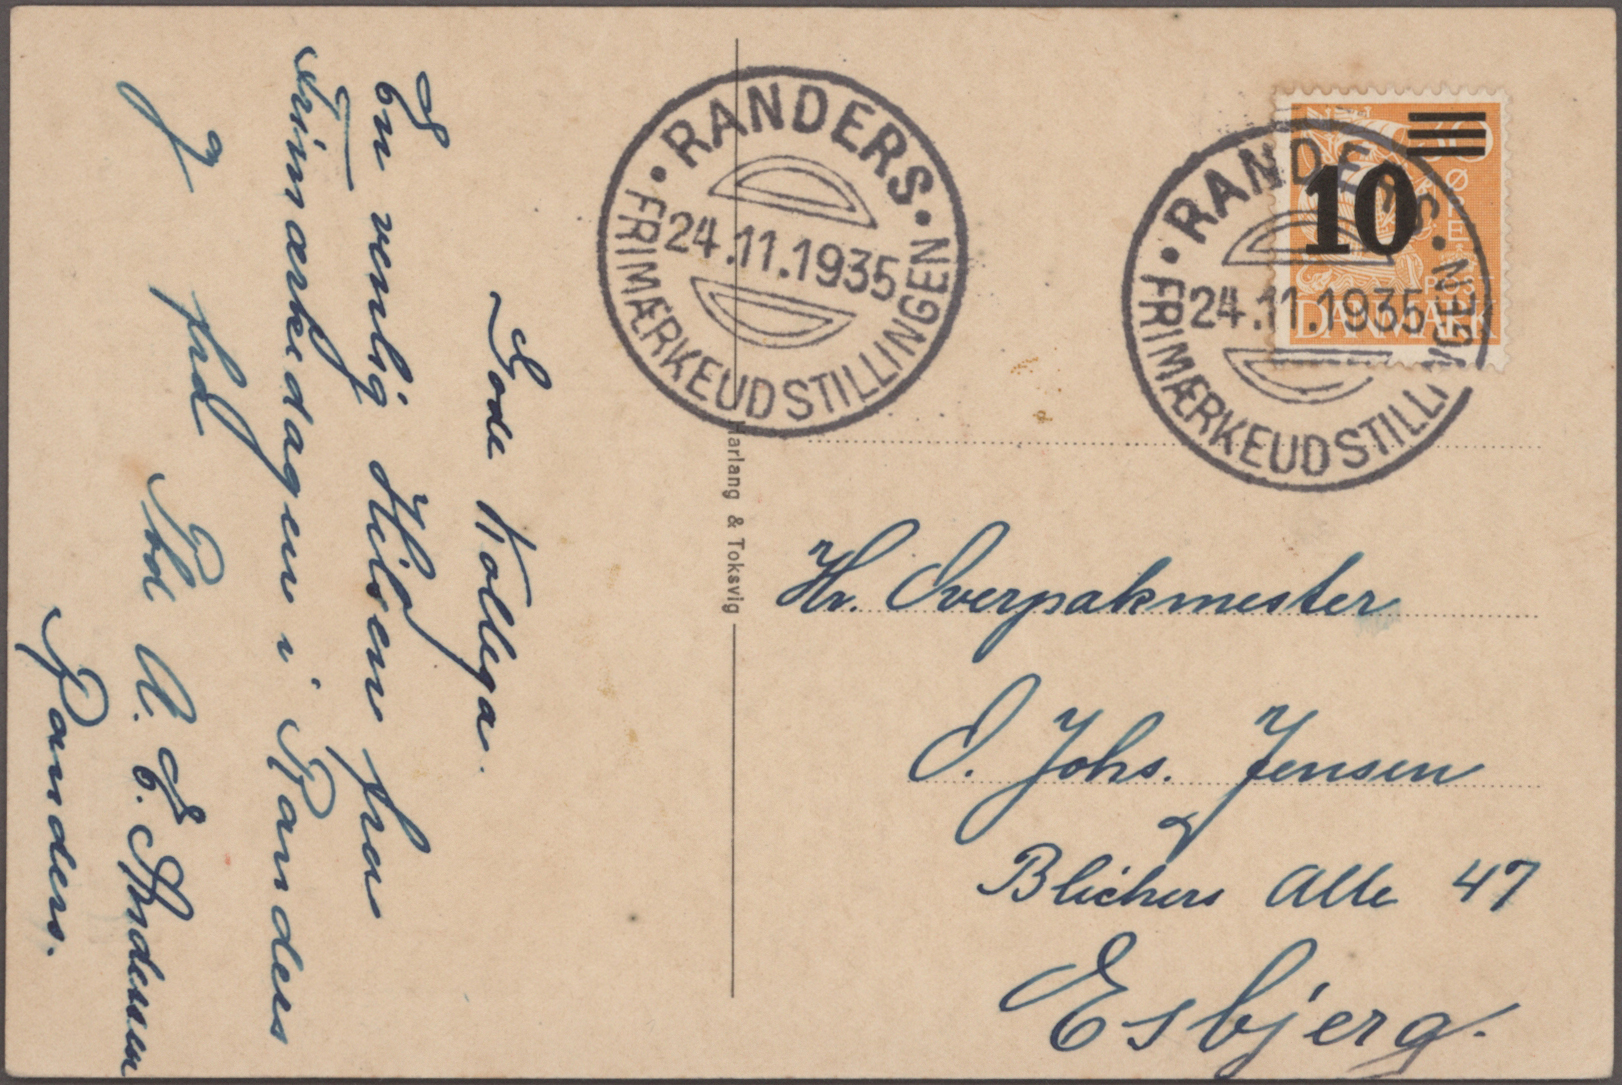 Gode Kollega.
En venlig Hilsen fra
Frimærkedagen i Randers
A. E. Andersen
Randers.
RANDERS
24.11.1935
FRIMÆRKEUDSTILLINGEN
Harlang & Toksvig
RANDERS
24.11.1935
FRIMÆRKEUDSTILLINGEN
30
10
ØRE
POST
DANMARK
Hr. Overpakmester
O. Johs. Jensen
Blichers Alle 47
Esbjerg.